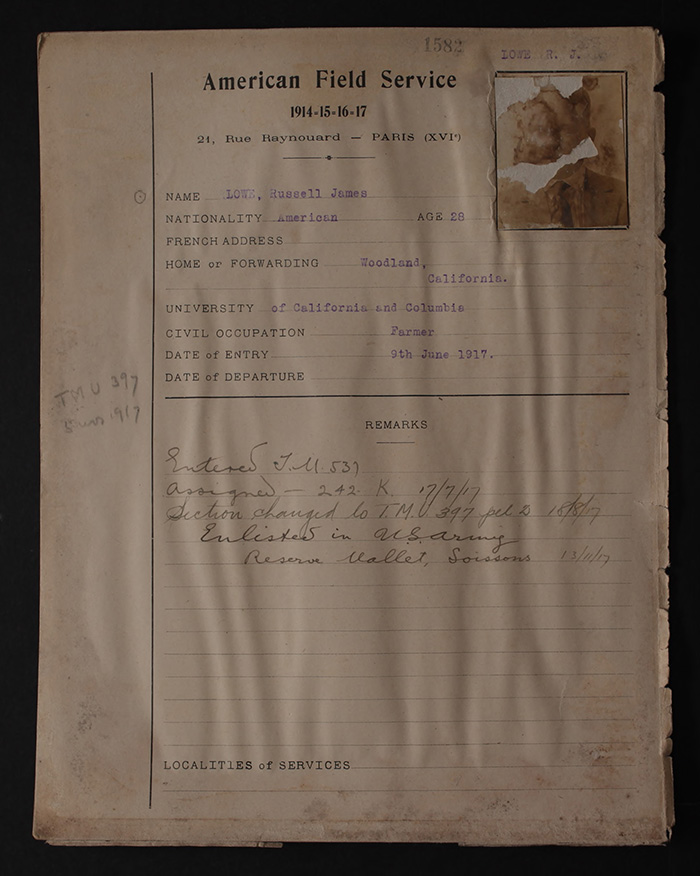 1582
LOWE R. J.
American Field Service
1914-15-16-17
21, Rue Raynouard — PARIS (XVIe)
NAME LOWE, Russell James
NATIONALITY American AGE 28
FRENCH ADDRESS
HOME or FORWARDING Woodland,
California.
UNIVERSITY of California and Columbia
CIVIL OCCUPATION Farmer
DATE of ENTRY 9th June 1917.
DATE of DEPARTURE
TMU 397
1917
REMARKS
Entered T.M. 537
Assigned — 242. K. 17/7/17
Section changed to T.M.U 397 18/8/17
Enlisted in U.S. Army
Reserve Mallet, Soissons 13/11/17
LOCALITIES of SERVICES